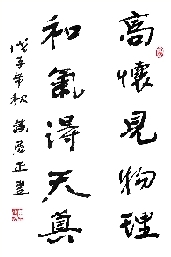 高懷見物理
和氣得天真
戊子年秋